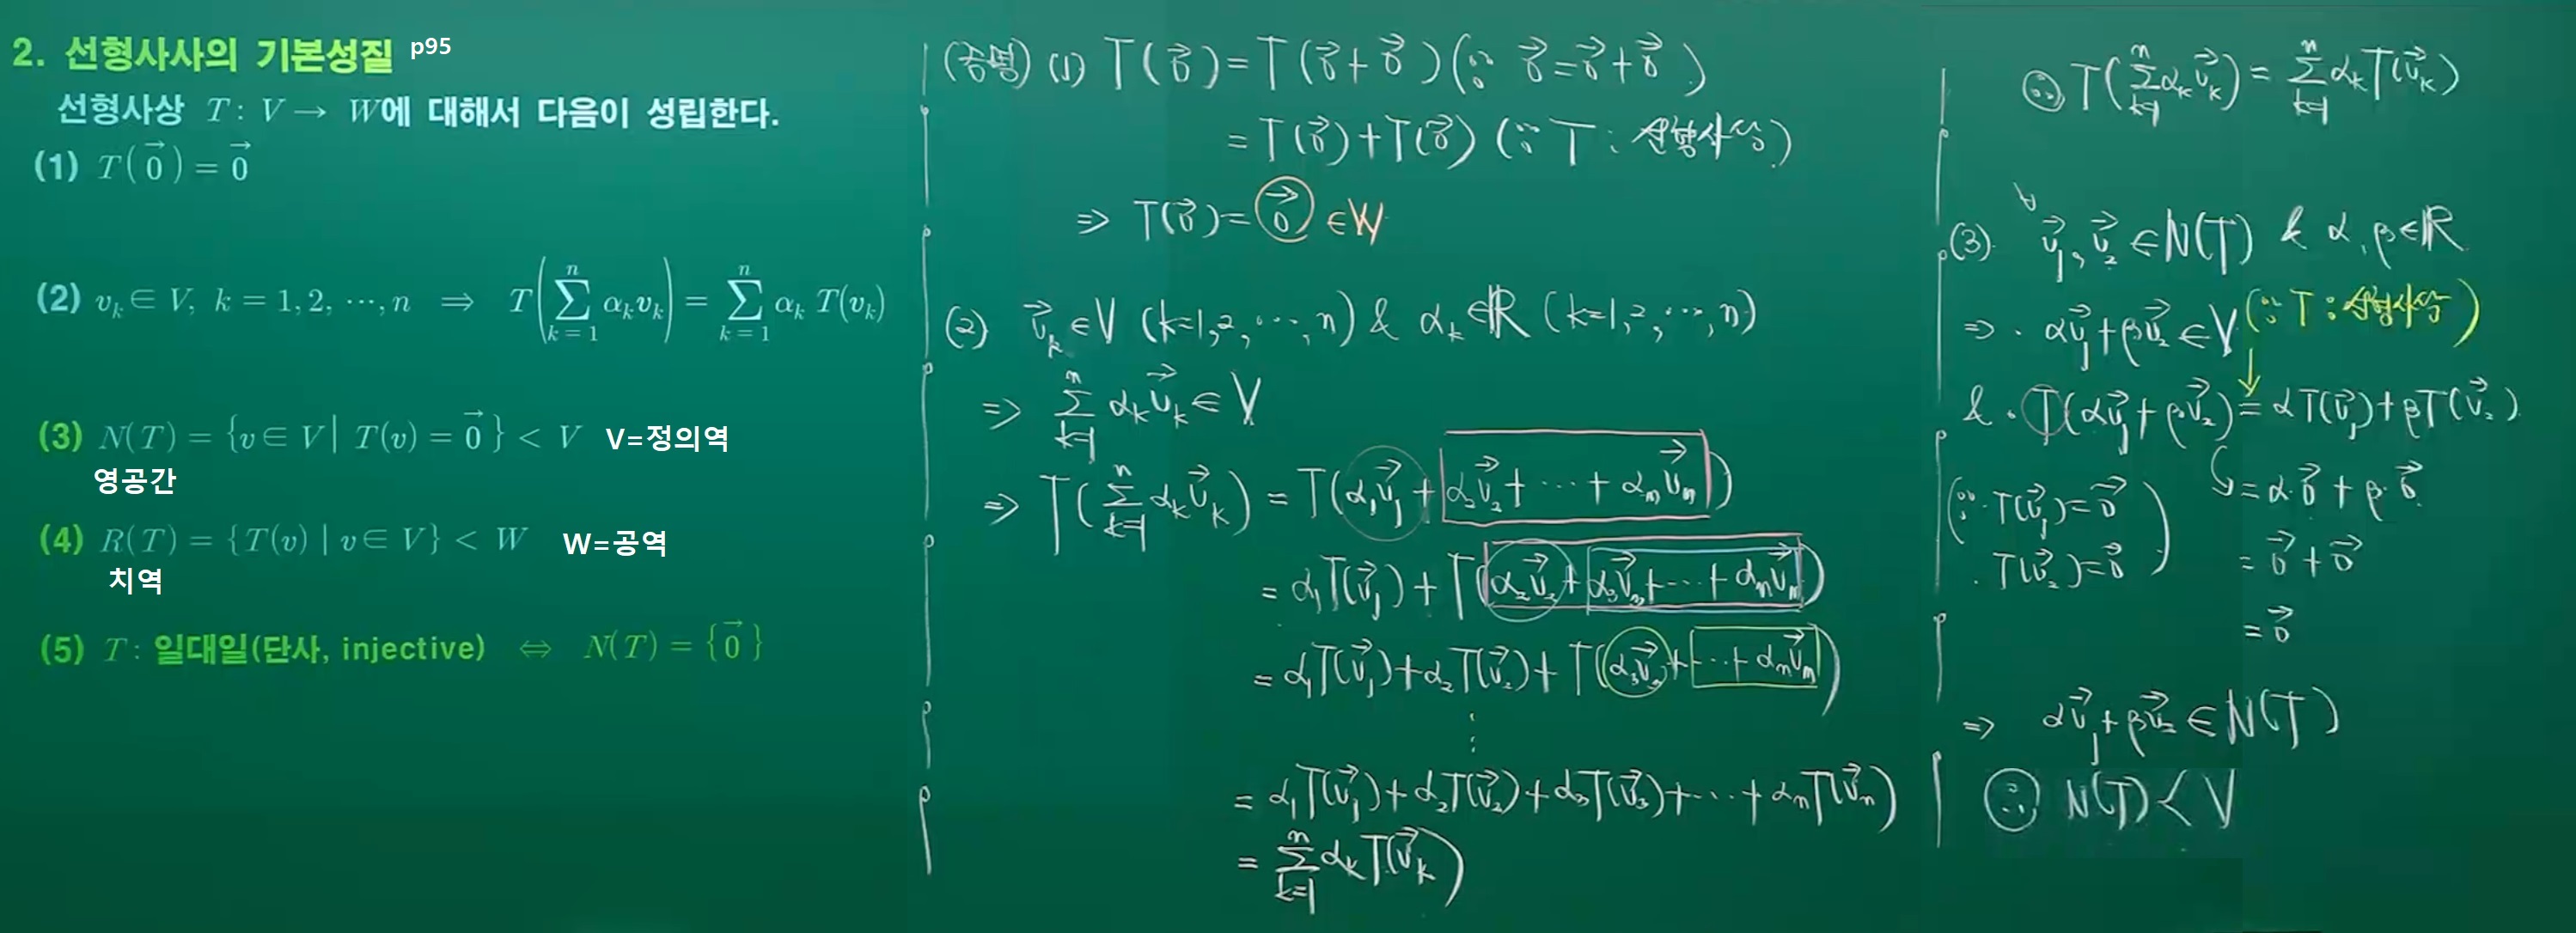 2. 선형사사의 기본성질 p95
선형사상 T : V → W에 대해서 다음이 성립한다.
(1) T(0⃗) = 0⃗
(2) vₖ ∈ V, k = 1, 2, ⋯, n ⇒ T(∑ₖ₌₁ⁿ αₖvₖ) = ∑ₖ₌₁ⁿ αₖ T(vₖ)
(3) N(T) = {v ∈ V | T(v) = 0⃗} < V V=정의역
영공간
(4) R(T) = {T(v) | v ∈ V} < W W=공역
치역
(5) T : 일대일(단사, injective) ⇔ N(T) = {0⃗}
(증명) (1) T(0⃗) = T(0⃗ + 0⃗) (∵ 0⃗ = 0⃗ + 0⃗)
= T(0⃗) + T(0⃗) (∵ T : 선형사상)
⇒ T(0⃗) = 0⃗ ∈ W
(2) v⃗ₖ ∈ V (k=1, 2, ⋯, n) & αₖ ∈ ℝ (k=1, 2, ⋯, n)
⇒ ∑ₖ₌₁ⁿ αₖv⃗ₖ ∈ V
⇒ T(∑ₖ₌₁ⁿ αₖv⃗ₖ) = T(α₁v⃗₁ + α₂v⃗₂ + ⋯ + αₙv⃗ₙ)
= α₁T(v⃗₁) + T(α₂v⃗₂ + α₃v⃗₃ + ⋯ + αₙv⃗ₙ)
= α₁T(v⃗₁) + α₂T(v⃗₂) + T(α₃v⃗₃ + ⋯ + αₙv⃗ₙ)
⋮
= α₁T(v⃗₁) + α₂T(v⃗₂) + α₃T(v⃗₃) + ⋯ + αₙT(v⃗ₙ)
= ∑ₖ₌₁ⁿ αₖT(v⃗ₖ)
∴ T(∑ₖ₌₁ⁿ αₖv⃗ₖ) = ∑ₖ₌₁ⁿ αₖT(v⃗ₖ)
(3) ∀ v⃗₁, v⃗₂ ∈ N(T) & α, β ∈ ℝ
⇒ · αv⃗₁ + βv⃗₂ ∈ V (∵ T : 선형사상)
& · T(αv⃗₁ + βv⃗₂) = αT(v⃗₁) + βT(v⃗₂)
= α·0⃗ + β·0⃗
(∵ · T(v⃗₁) = 0⃗
· T(v⃗₂) = 0⃗)
= 0⃗ + 0⃗
= 0⃗
⇒ αv⃗₁ + βv⃗₂ ∈ N(T)
∴ N(T) < V